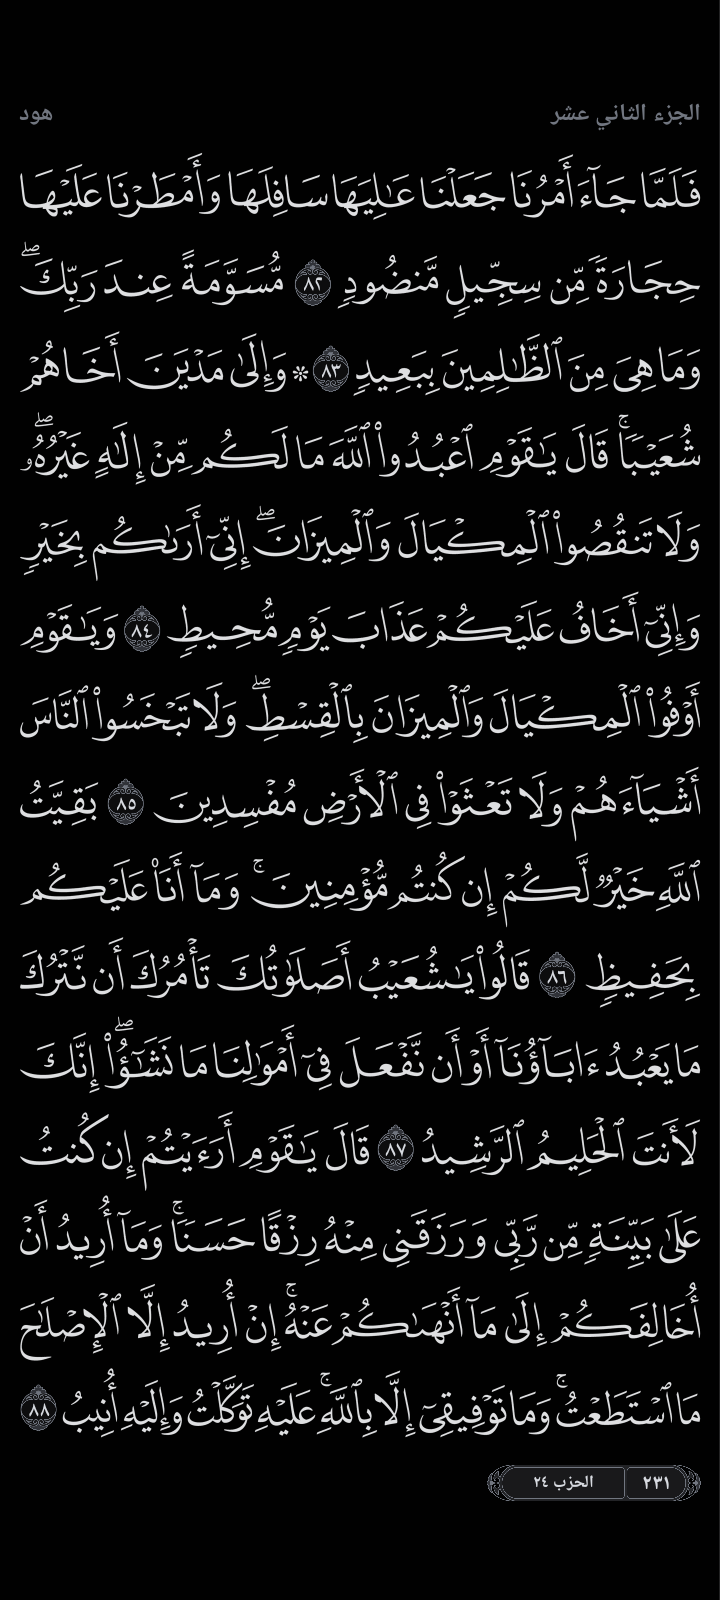 الجزء الثاني عشر
هود
فَلَمَّا جَآءَ أَمْرُنَا جَعَلْنَا عَـٰلِيَهَا سَافِلَهَا وَأَمْطَرْنَا عَلَيْهَا
حِجَارَةً مِّن سِجِّيلٍ مَّنضُودٍ ٨٢ مُّسَوَّمَةً عِندَ رَبِّكَۖ
وَمَا هِىَ مِنَ ٱلظَّـٰلِمِينَ بِبَعِيدٍ ٨٣ * وَإِلَىٰ مَدْيَنَ أَخَاهُمْ
شُعَيْبًاۚ قَالَ يَـٰقَوْمِ ٱعْبُدُوا۟ ٱللَّهَ مَا لَكُم مِّنْ إِلَـٰهٍ غَيْرُهُۥۖ
وَلَا تَنقُصُوا۟ ٱلْمِكْيَالَ وَٱلْمِيزَانَۖ إِنِّىٓ أَرَىٰكُم بِخَيْرٍ
وَإِنِّىٓ أَخَافُ عَلَيْكُمْ عَذَابَ يَوْمٍ مُّحِيطٍ ٨٤ وَيَـٰقَوْمِ
أَوْفُوا۟ ٱلْمِكْيَالَ وَٱلْمِيزَانَ بِٱلْقِسْطِۖ وَلَا تَبْخَسُوا۟ ٱلنَّاسَ
أَشْيَآءَهُمْ وَلَا تَعْثَوْا۟ فِى ٱلْأَرْضِ مُفْسِدِينَ ٨٥ بَقِيَّتُ
ٱللَّهِ خَيْرٌ لَّكُمْ إِن كُنتُم مُّؤْمِنِينَۚ وَمَآ أَنَا۠ عَلَيْكُم
بِحَفِيظٍ ٨٦ قَالُوا۟ يَـٰشُعَيْبُ أَصَلَوٰتُكَ تَأْمُرُكَ أَن نَّتْرُكَ
مَا يَعْبُدُ ءَابَآؤُنَآ أَوْ أَن نَّفْعَلَ فِىٓ أَمْوَٰلِنَا مَا نَشَـٰٓؤُا۟ۖ إِنَّكَ
لَأَنتَ ٱلْحَلِيمُ ٱلرَّشِيدُ ٨٧ قَالَ يَـٰقَوْمِ أَرَءَيْتُمْ إِن كُنتُ
عَلَىٰ بَيِّنَةٍ مِّن رَّبِّى وَرَزَقَنِى مِنْهُ رِزْقًا حَسَنًاۚ وَمَآ أُرِيدُ أَنْ
أُخَالِفَكُمْ إِلَىٰ مَآ أَنْهَىٰكُمْ عَنْهُۚ إِنْ أُرِيدُ إِلَّا ٱلْإِصْلَـٰحَ
مَا ٱسْتَطَعْتُۚ وَمَا تَوْفِيقِىٓ إِلَّا بِٱللَّهِۚ عَلَيْهِ تَوَكَّلْتُ وَإِلَيْهِ أُنِيبُ ٨٨
٢٣١ الحزب ٢٤